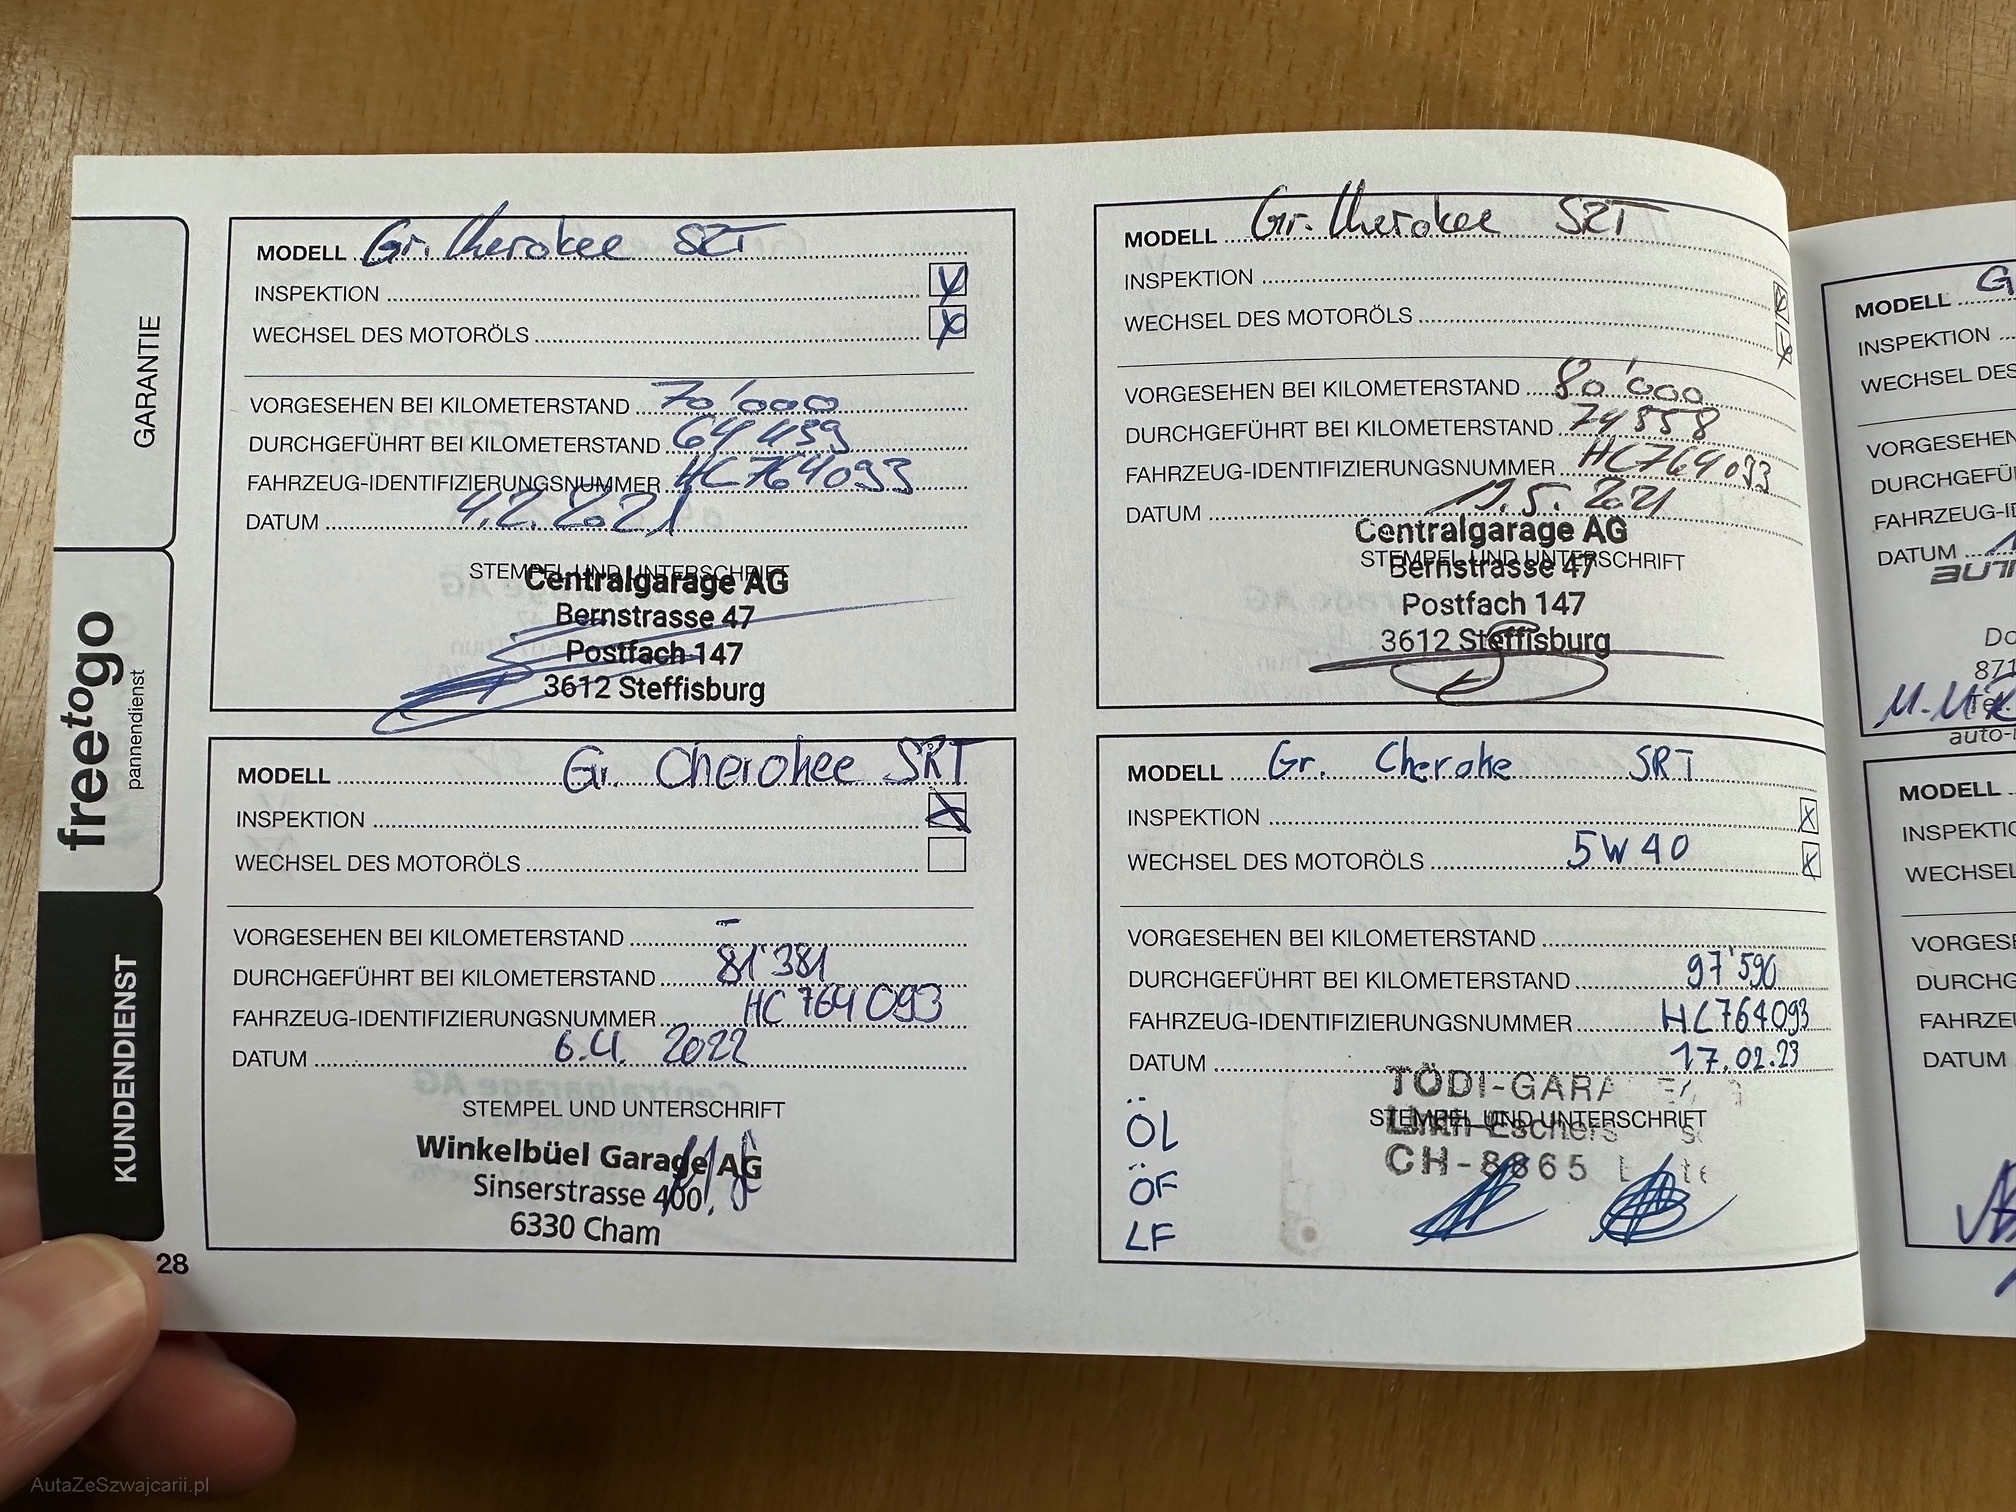 GARANTIE
freetogo
pannendienst
KUNDENDIENST
28
MODELL Gr. Cherokee SRT
INSPEKTION
WECHSEL DES MOTORÖLS
VORGESEHEN BEI KILOMETERSTAND 70'000
DURCHGEFÜHRT BEI KILOMETERSTAND 64439
FAHRZEUG-IDENTIFIZIERUNGSNUMMER HC764093
DATUM 4.2.2021
STEMPEL UND UNTERSCHRIFT
Centralgarage AG
Bernstrasse 47
Postfach 147
3612 Steffisburg
MODELL Gr. Cherokee SRT
INSPEKTION
WECHSEL DES MOTORÖLS
VORGESEHEN BEI KILOMETERSTAND 80'000
DURCHGEFÜHRT BEI KILOMETERSTAND 74558
FAHRZEUG-IDENTIFIZIERUNGSNUMMER HC764093
DATUM 5. 2021
Centralgarage AG
STEMPEL UND UNTERSCHRIFT
Bernstrasse 47
Postfach 147
3612 Steffisburg
MODELL Gr. Cherokee SRT
INSPEKTION
WECHSEL DES MOTORÖLS
VORGESEHEN BEI KILOMETERSTAND –
DURCHGEFÜHRT BEI KILOMETERSTAND 81'381
FAHRZEUG-IDENTIFIZIERUNGSNUMMER HC764093
DATUM 6.4. 2022
STEMPEL UND UNTERSCHRIFT
Winkelbüel Garage AG
Sinserstrasse 400
6330 Cham
MODELL Gr. Cheroke SRT
INSPEKTION
WECHSEL DES MOTORÖLS 5W40
VORGESEHEN BEI KILOMETERSTAND
DURCHGEFÜHRT BEI KILOMETERSTAND 97'590
FAHRZEUG-IDENTIFIZIERUNGSNUMMER HC764093
DATUM 17.02.23
TÖDI-GARA
STEMPEL UND UNTERSCHRIFT
CH-8865
ÖL
ÖF
LF
MODELL G
INSPEKTION
WECHSEL DES
VORGESEHEN
DURCHGEFÜ
FAHRZEUG-I
DATUM
Do
871
Tel.
auto-
MODELL
INSPEKTIO
WECHSEL
VORGESE
DURCHG
FAHRZE
DATUM
AutaZeSzwajcarii.pl